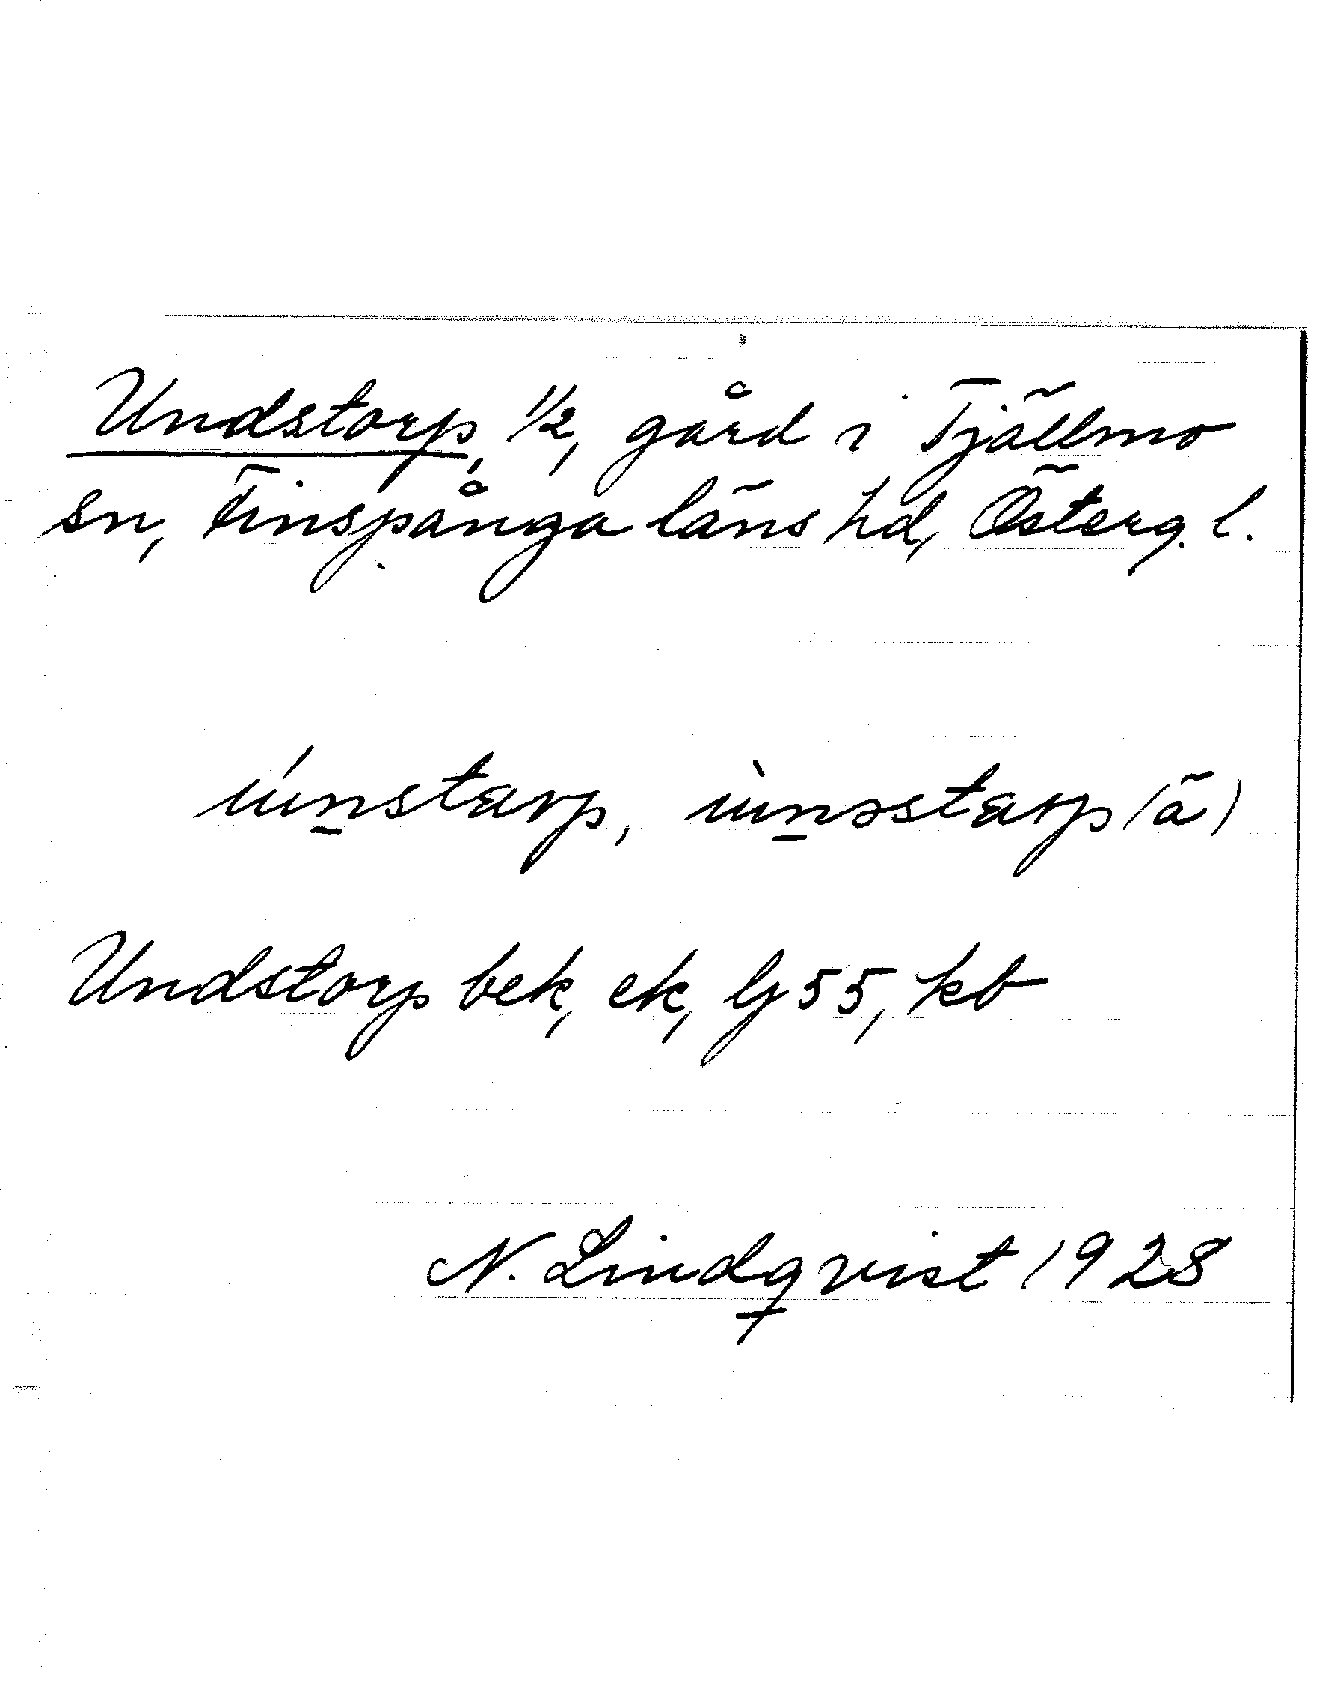 Undstorp, 1/2, gård i Tjällmo
sn, Finspånga läns hd, Österg. l.
ún̲starp, ùn̲əstarp (ä)
Undstorp bek, ek, lj 55, kb
N. Lindqvist 1928